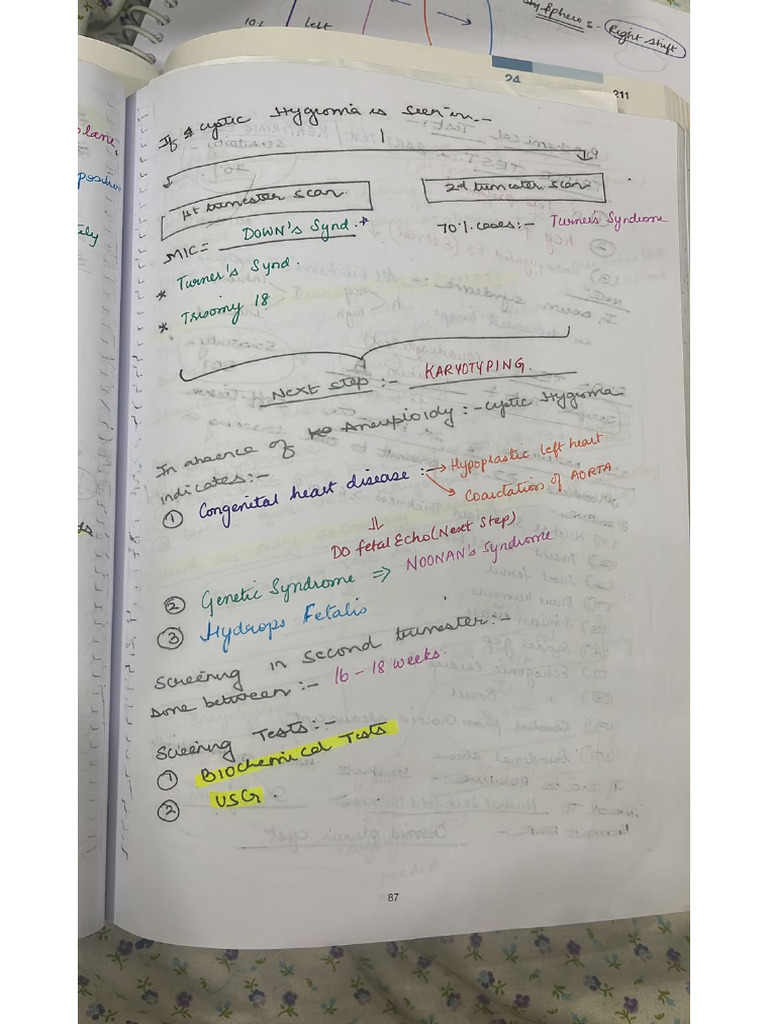 10% left
Right shift
24
211
lane,
position
tely
If cystic Hygroma is seen in :-
1st trimester scan.
2nd trimester scan.
MIC = Down's Synd. *
70% cases :- Turner's Syndrome
* Turner's Synd.
* Trisomy 18
Next step :- KARYOTYPING.
In absence of Aneuploidy :- cystic Hygroma
indicates :-
① Congenital heart disease :- → Hypoplastic left heart
→ Coarctation of AORTA
⇓
Do fetal Echo (Next Step)
② Genetic Syndrome ⇒ NOONAN's Syndrome
③ Hydrops Fetalis
Screening in second trimester :-
Done between :- 16 - 18 weeks.
Screening Tests :-
① Biochemical Tests
② USG.
87